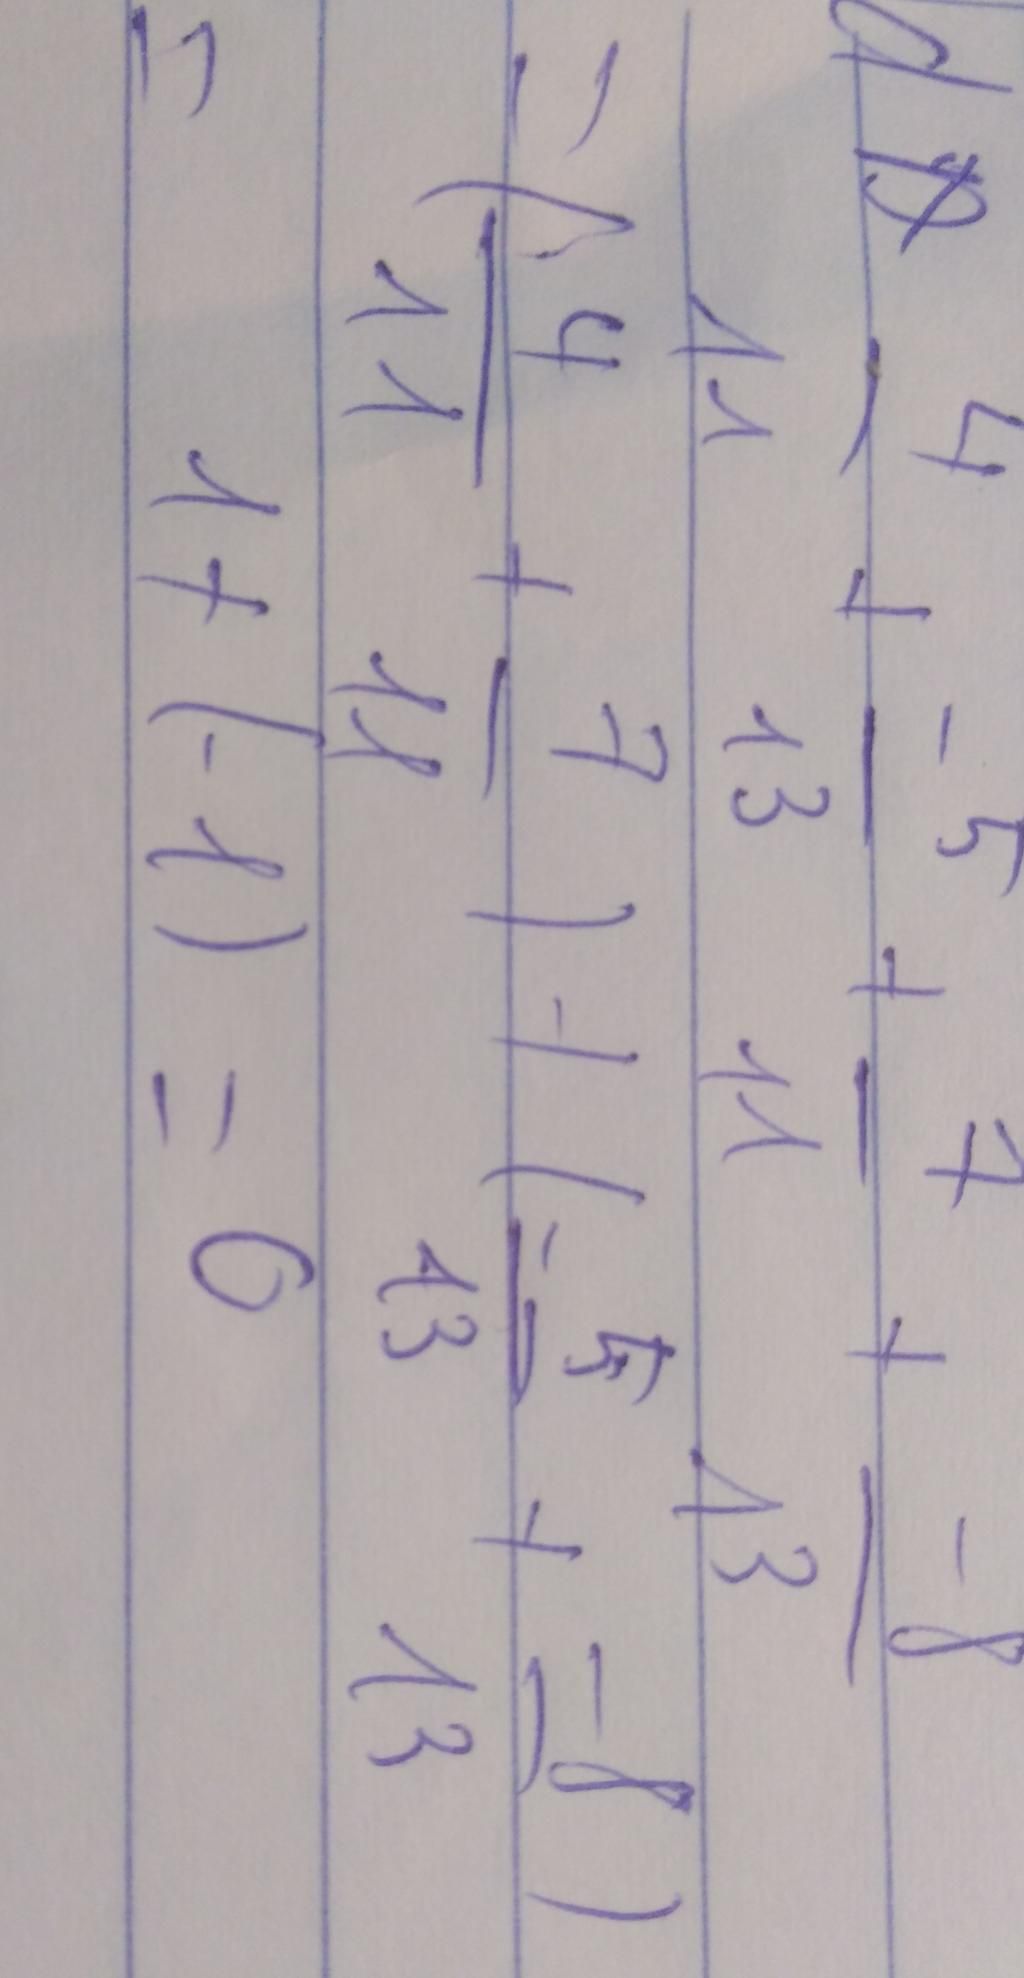 d) 4/11 + -5/13 + 7/11 + -8/13
= (4/11 + 7/11) + (-5/13 + -8/13)
= 1 + (-1) = 0